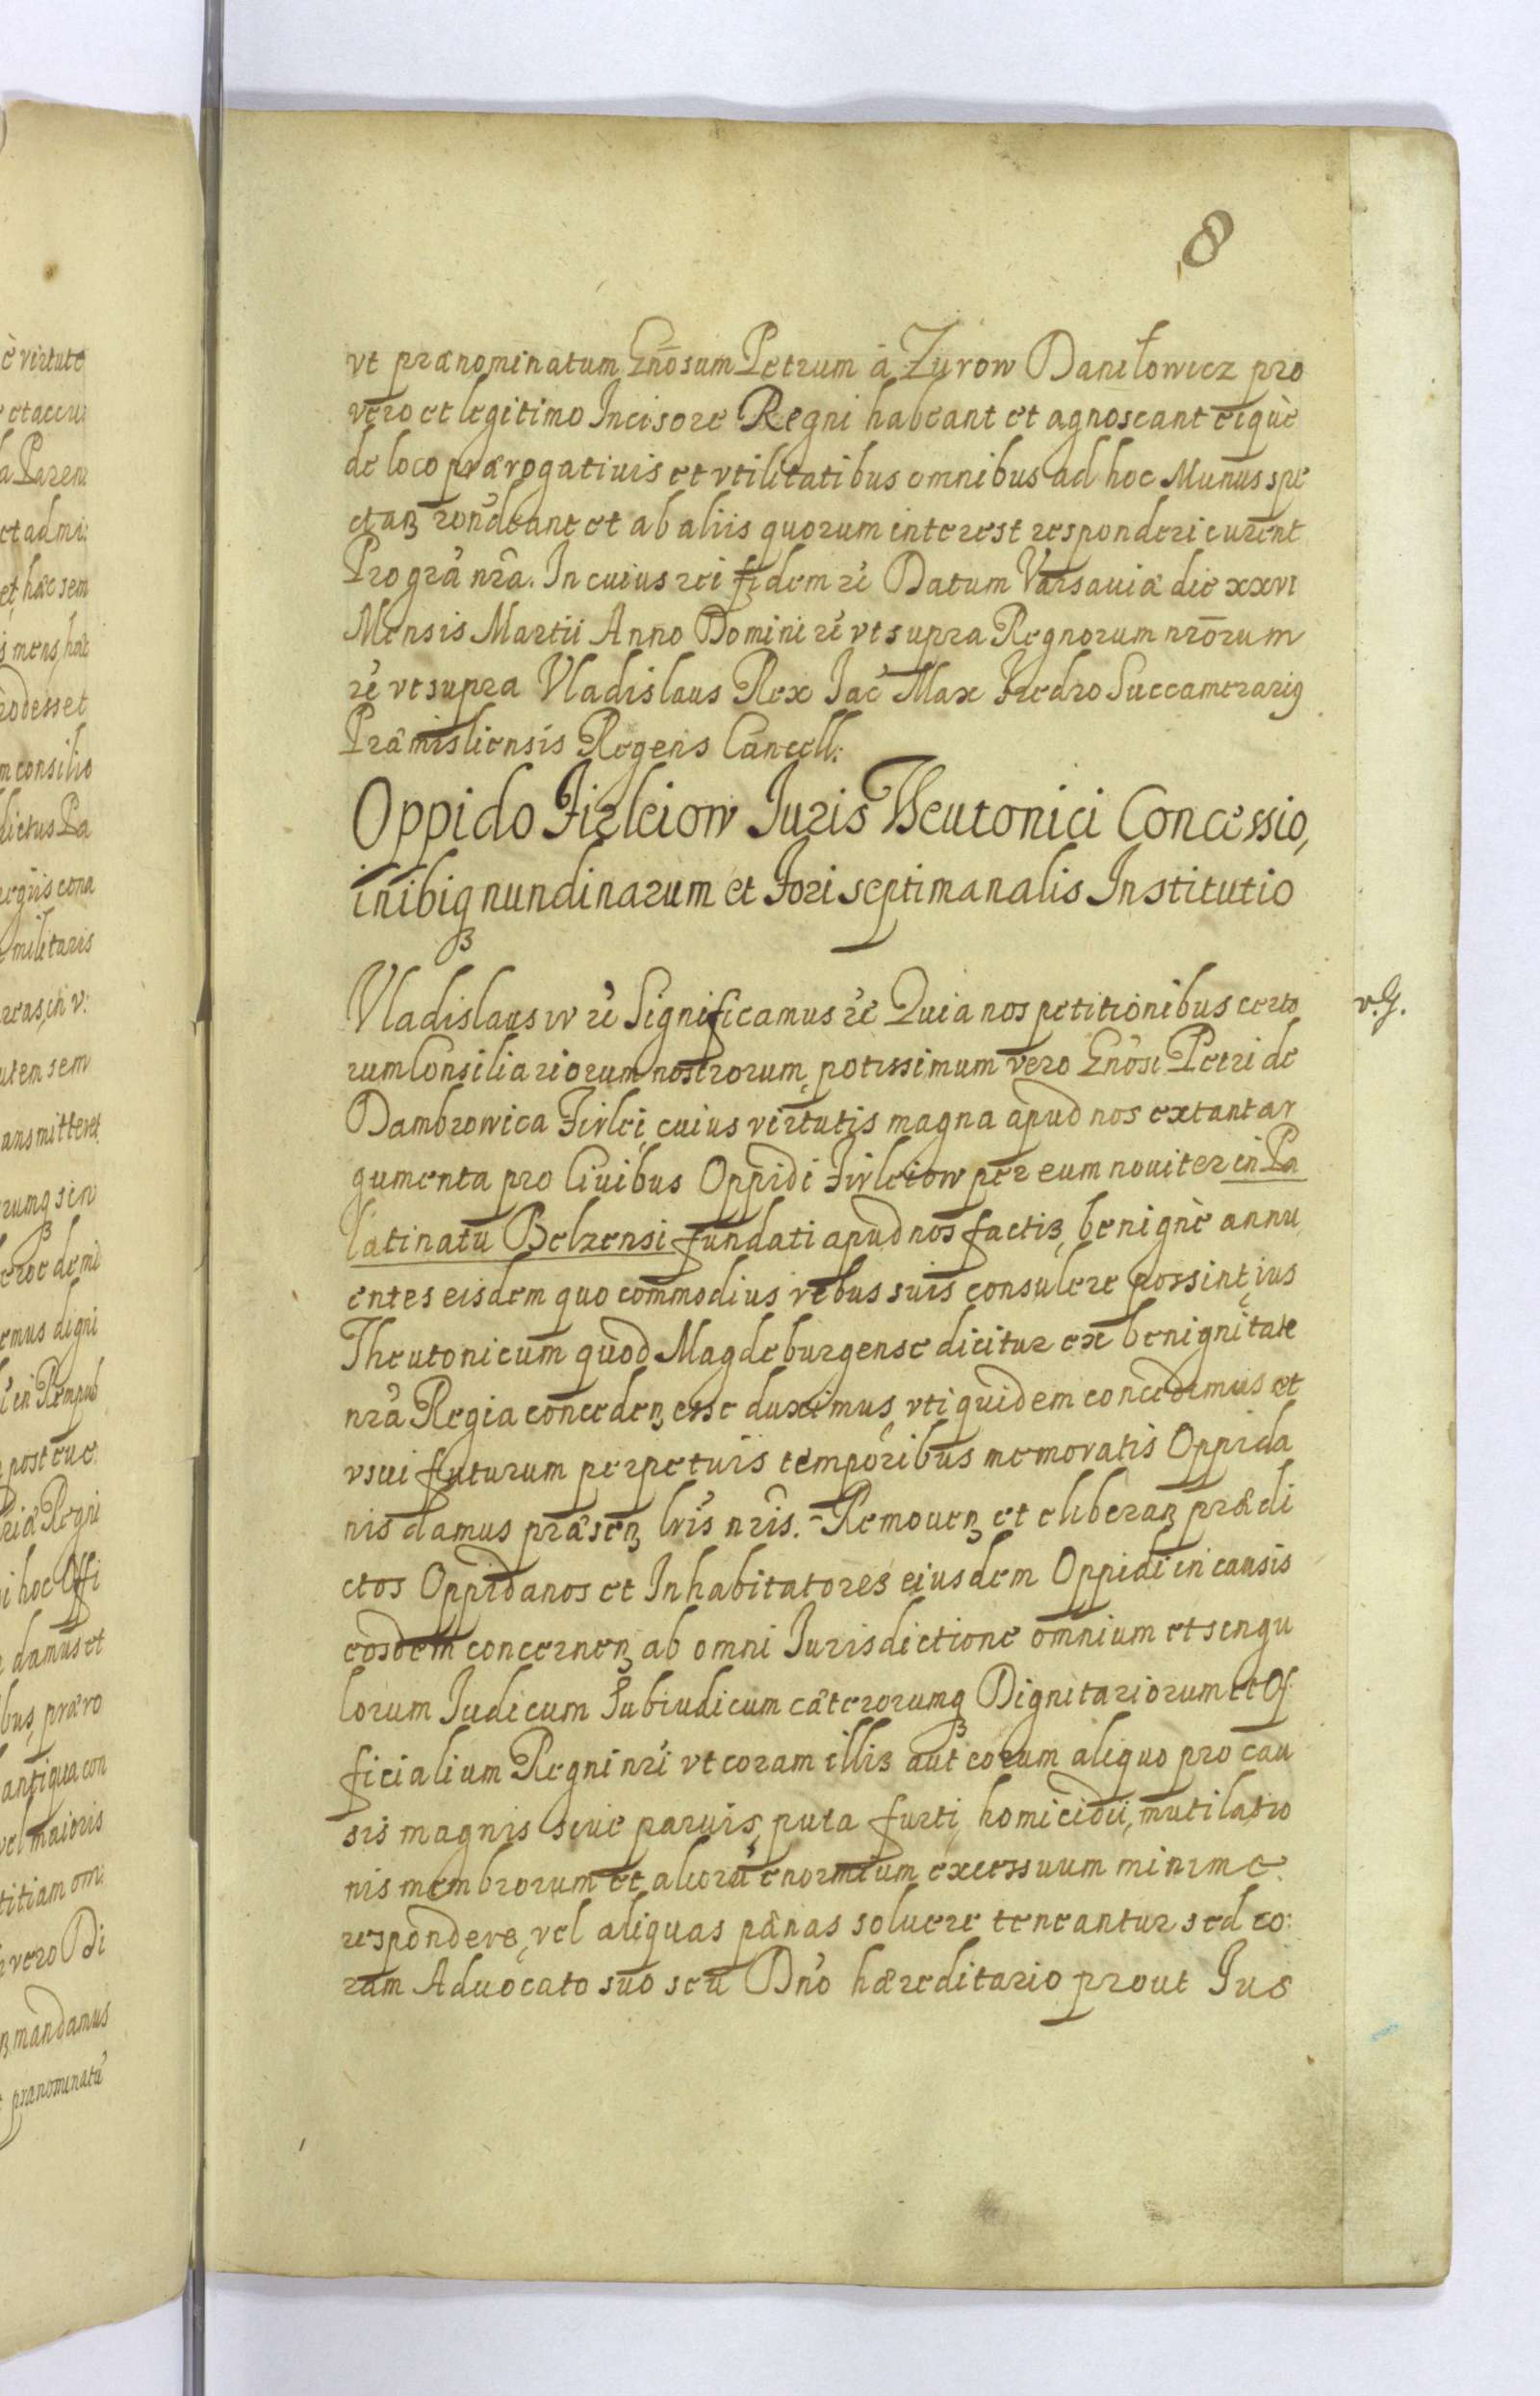 8
vt prænominatum Gnōsum Petrum à Zurow Daniłowicz pro
vero et legitimo Incisore Regni habeant et agnoscant eiquè
de loco prærogatiuis et vtilitatibus omnibus ad hoc Munus spe
ctan ron̄deant et ab aliis quorum interest responderi curent
Pro grâ nrâ. In cuius rei fidem rê Datum Varsauiæ die xxvi
Mensis Martii Anno Domini rê vt supra Regnorum nrōrum
rê vt supra Vladislaus Rex Jac Max Fredro Succamerariꝯ
Præmisliensis Regens Cancell:
Oppido Firleiow Juris Theutonici Concessio,
inibiqꝫ nundinarum et Fori septimanalis Institutio
Vladislaus IV rê Significamus rê Quia nos petitionibus certo
v. G.
rum Consiliariorum nostrorum, potissimum vero Gnōsi Petri de
Dambrowica Firlei, cuius virtutis magna apud nos extant ar
gumenta pro Ciuibus Oppidi Firleiow per eum nouiter in Pa
latinatu Belzensi fundati apud nos factis, benignè annu
entes eisdem quo commodius rebus suis consulere possint, ius
Theutonicum quod Magdeburgense dicitur ex benignitate
nrâ Regia conceden esse duximus, vti quidem concedimus et
vsui futurum perpetuis temporibus memoratis Oppida
nis damus præsen lris nris. Remouen et eliberan prædi
ctos Oppidanos et Inhabitatores eiusdem Oppidi in causis
eosdem concernen ab omni Jurisdictione omnium et singu
lorum Judicum Subiudicum cæterorumqꝫ Dignitariorum et Of
ficialium Regni nri vt coram illis aut eorum aliquo pro cau
sis magnis siue paruis, puta furti, homicidii, mutilatio
nis membrorum et aliorū enormium excessuum minime
respondere, vel aliquas pænas soluere teneantur sed co:
ram Aduocato suo seu Dn̄o hæreditario prout Jus